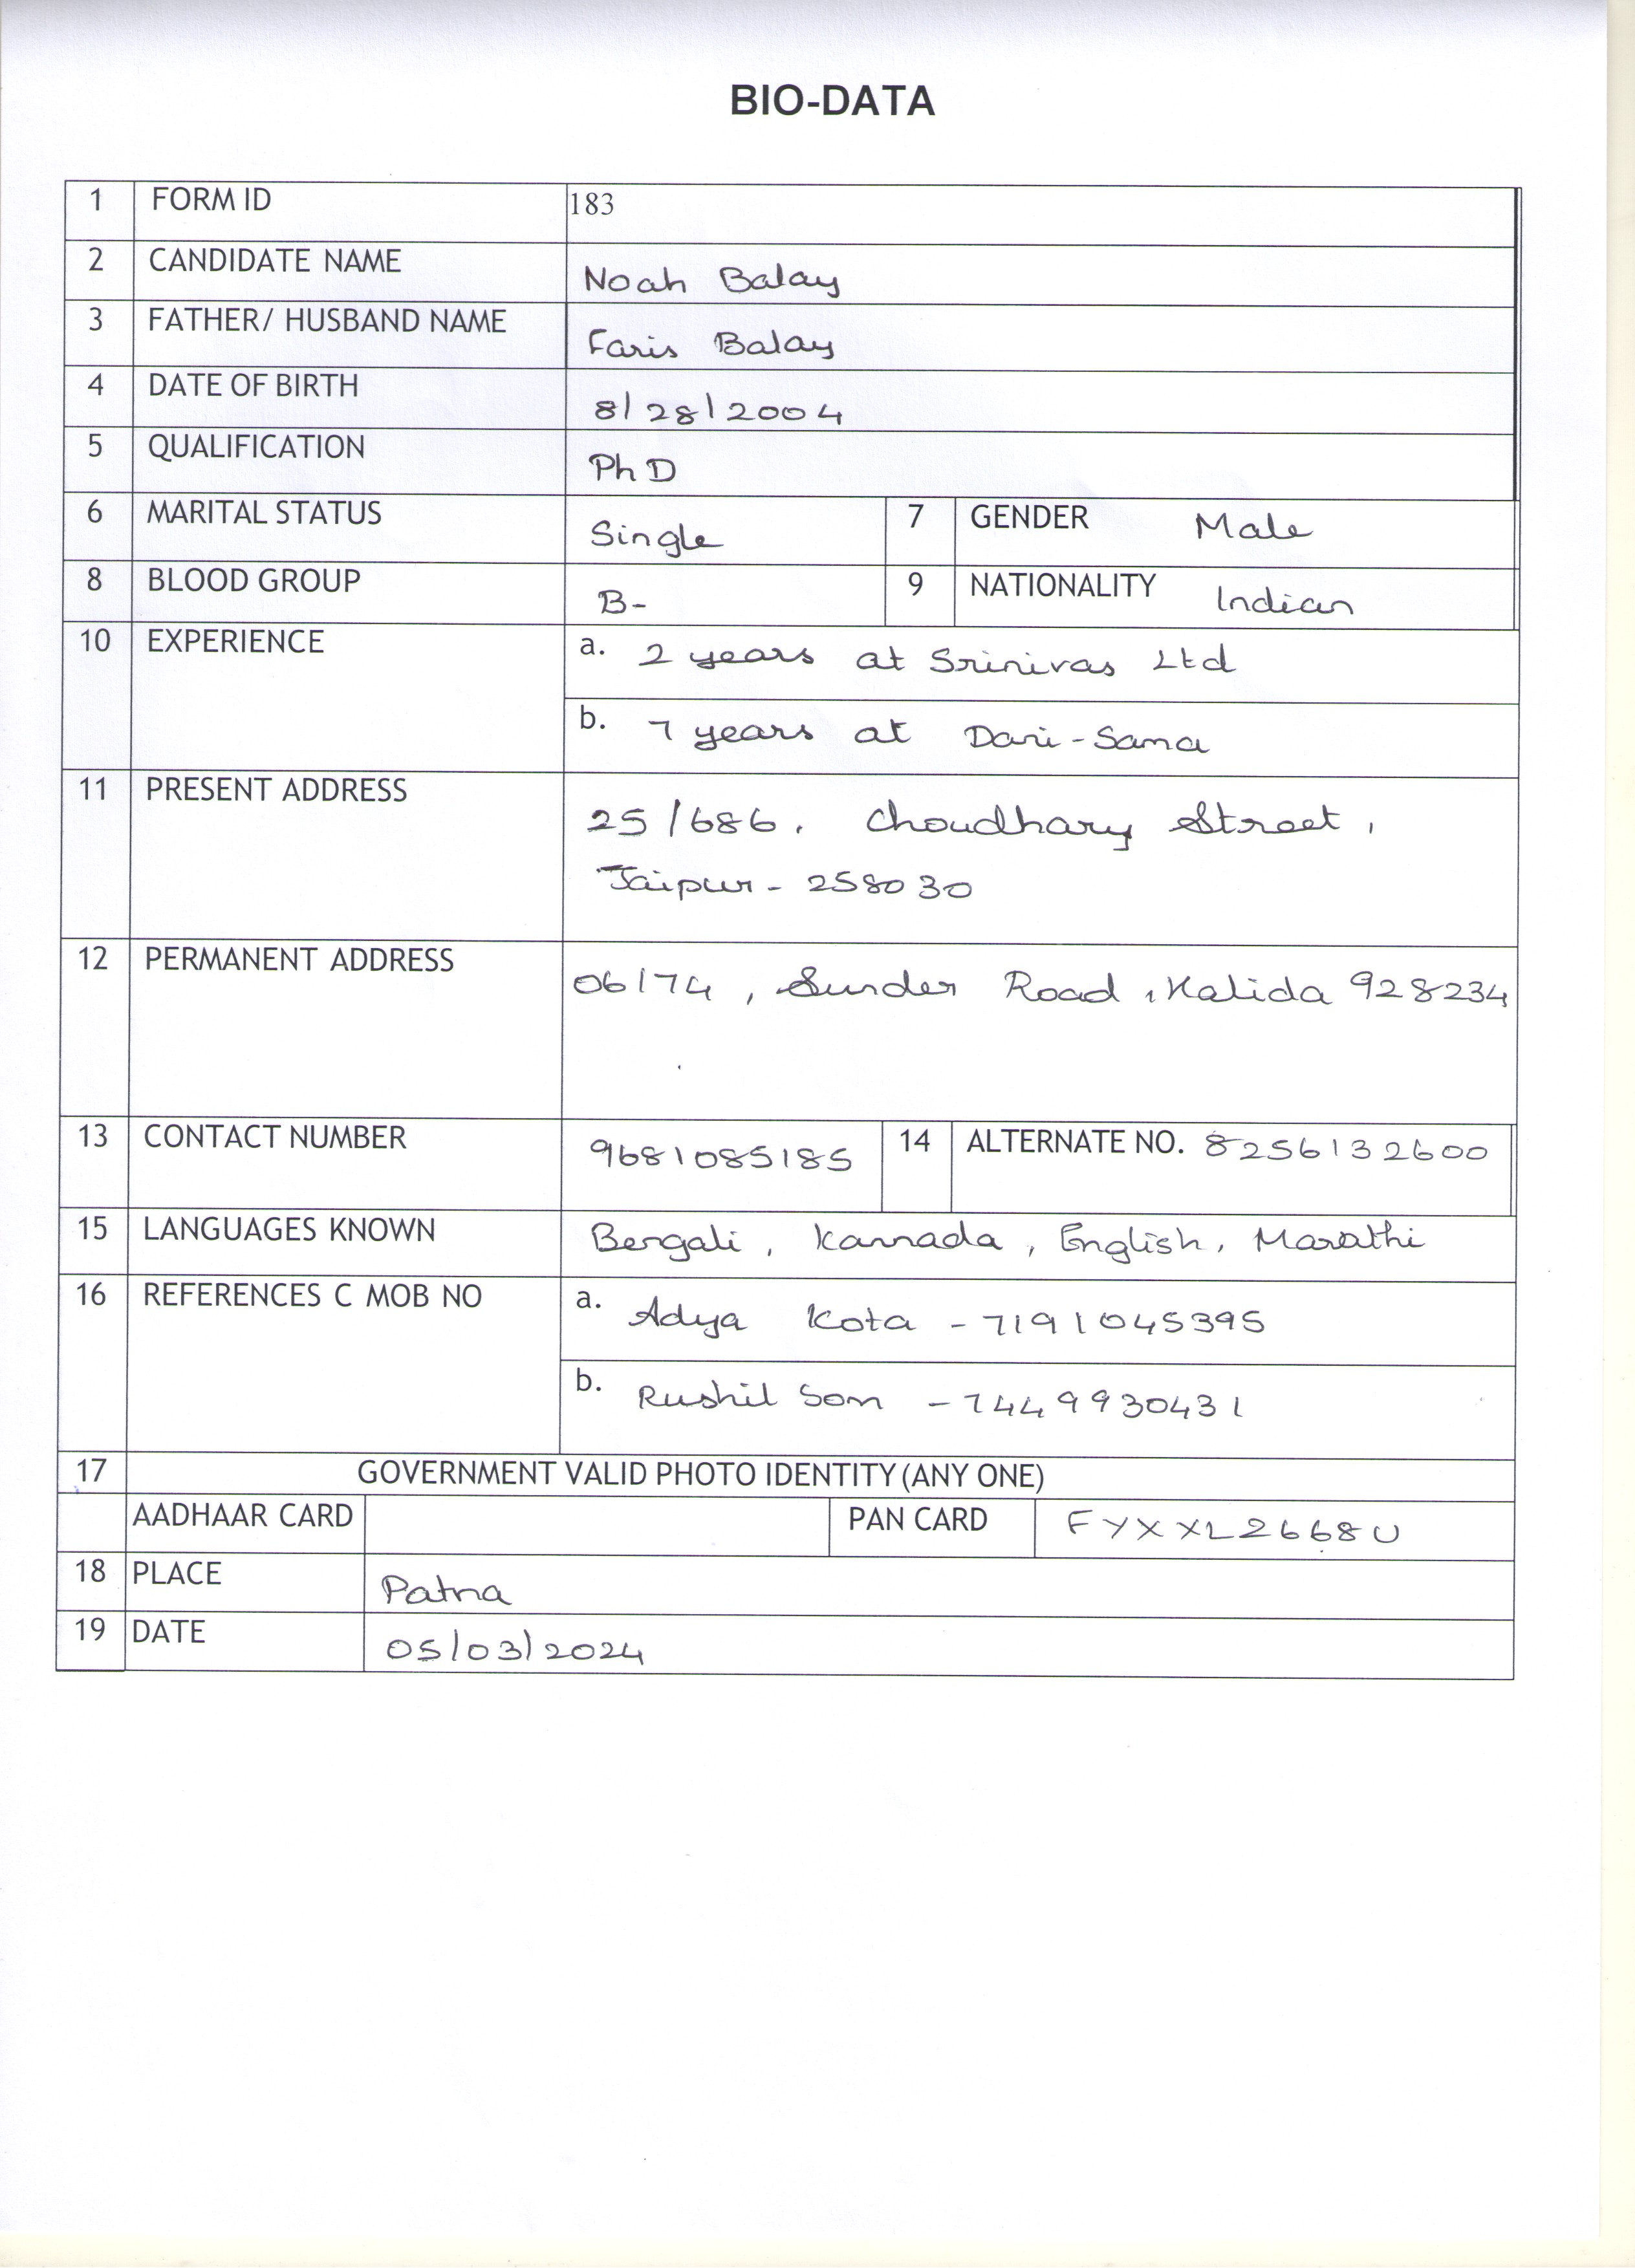 BIO-DATA
1 FORM ID 183
2 CANDIDATE NAME Noah Balay
3 FATHER/ HUSBAND NAME Faris Balay
4 DATE OF BIRTH 8/28/2004
5 QUALIFICATION PhD
6 MARITAL STATUS Single 7 GENDER Male
8 BLOOD GROUP B- 9 NATIONALITY Indian
10 EXPERIENCE a. 2 years at Srinivas Ltd
b. 7 years at Dani-Sama
11 PRESENT ADDRESS 25/686, Choudhary Street,
Jaipur - 258030
12 PERMANENT ADDRESS 06/74, Sunder Road, Kalida 928234
13 CONTACT NUMBER 9681085185 14 ALTERNATE NO. 8256132600
15 LANGUAGES KNOWN Bengali, Kannada, English, Marathi
16 REFERENCES C MOB NO a. Adya Kota - 7191045395
b. Rushil Som - 7449930431
17 GOVERNMENT VALID PHOTO IDENTITY (ANY ONE)
AADHAAR CARD PAN CARD FYXXL2668U
18 PLACE Patna
19 DATE 05/03/2024